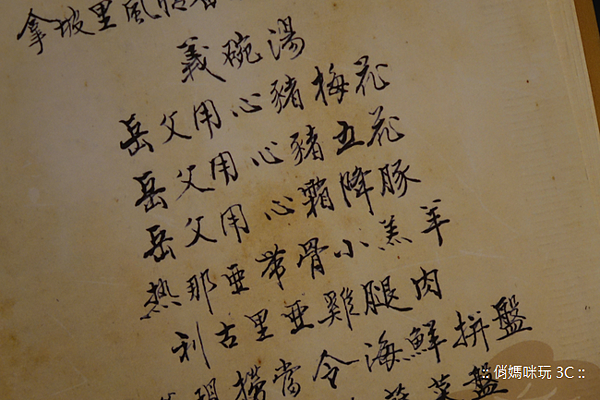 拿坡里風情
義碗湯
岳父用心豬梅花
岳父用心豬五花
岳父用心霜降豚
熱那亞帶骨小羔羊
利古里亞雞腿肉
現撈當令海鮮拼盤
菜盤
:: 俏媽咪玩 3C ::